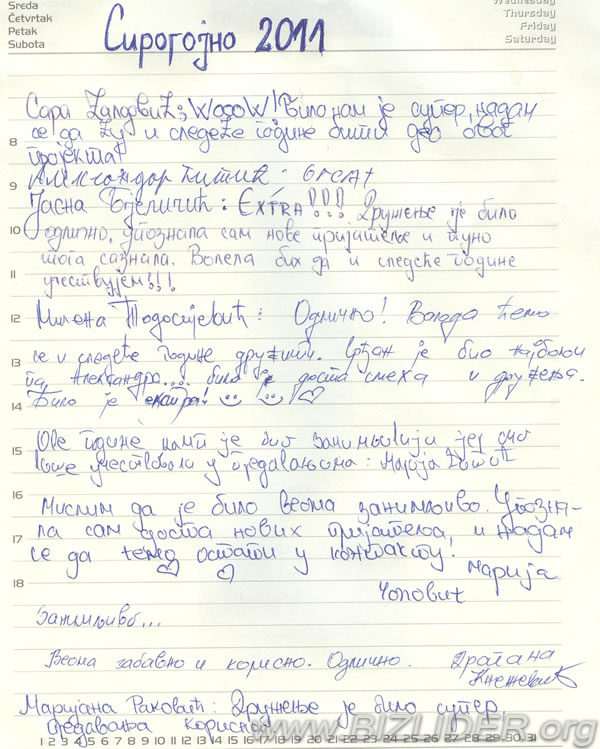 Sreda
Četvrtak
Petak
Subota
Wednesday
Thursday
Friday
Saturday
Сирогојно 2011
Сара : WoooW! Било нам је супер, надам
се да ћу и следеће године бити део овог
пројекта!
8
9
Јасна Бјеличић : EXTRA!!! Дружење је било
одлично. Упознала сам нове пријатеље и пуно
10
тога сазнала. Волела бих да и следеће године
11
учествујем!!!
12
Милена Тодосијевић : Одлично! Ћемо
се и следеће године дружити. Срђан је био најбољи
13
па Александра.... било је доста смеха и дружења.
14
Било је екстра!
Ове године нам је био занимљивији јер смо
15
више учествовали у предавањима : Марија
16
Мислим да је било веома занимљиво. Упозна-
ла сам доста нових пријатеља, и надам
17
се да ћемо остати у контакту.
Марија
18
Чоповић
Занимљиво...
Веома забавно и корисно. Одлично. Драгана
Кнежевић
Маријана Раковић : Дружење је било супер,
предавања корисна
www.BIZLIDER.org
1 2 3 4 5 6 7 8 9 10 11 12 13 14 15 16 17 18 19 20 21 22 23 24 25 26 27 28 29 30 31